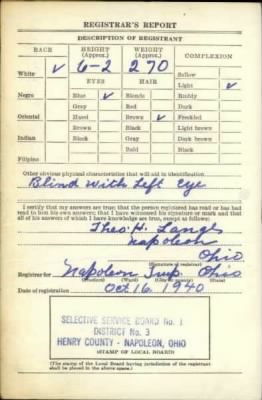 REGISTRAR'S REPORT
DESCRIPTION OF REGISTRANT
RACE HEIGHT (Approx.) WEIGHT (Approx.) COMPLEXION
White ✓ 6-2 270 Sallow
EYES HAIR Light ✓
Negro Blue ✓ Blonde Ruddy
Gray Red Dark
Oriental Hazel Brown ✓ Freckled
Brown Black Light brown
Indian Black Gray Dark brown
Bald Black
Filipino
Other obvious physical characteristics that will aid in identification
Blind With Left Eye
I certify that my answers are true; that the person registered has read or has had
read to him his own answers; that I have witnessed his signature or mark and that
all of his answers of which I have knowledge are true, except as follows:
Theo. H. Lange
Napoleon
Ohio
(Signature of registrar)
Registrar for Napoleon Twp. Ohio
(Precinct) (Ward) (City or county) (State)
Date of registration Oct 16, 1940
SELECTIVE SERVICE BOARD No. 1
DISTRICT No. 3
HENRY COUNTY - NAPOLEON, OHIO
(STAMP OF LOCAL BOARD)
(The stamp of the Local Board having jurisdiction of the registrant
shall be placed in the above space.)